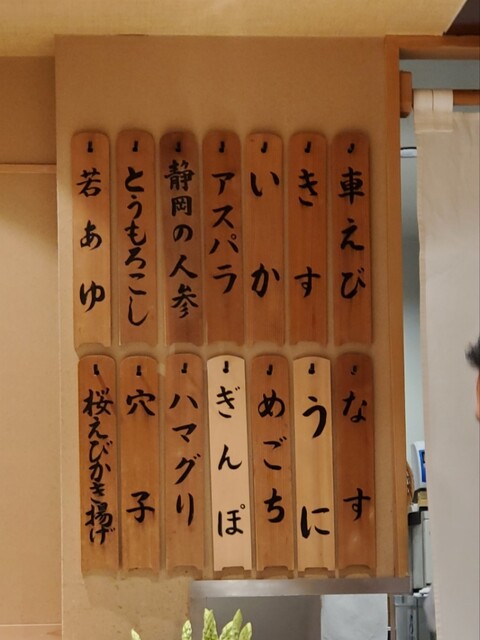 車えび
きす
いか
アスパラ
静岡の人参
とうもろこし
若あゆ
なす
うに
めごち
ぎんぽ
ハマグリ
穴子
桜えびかき揚げ